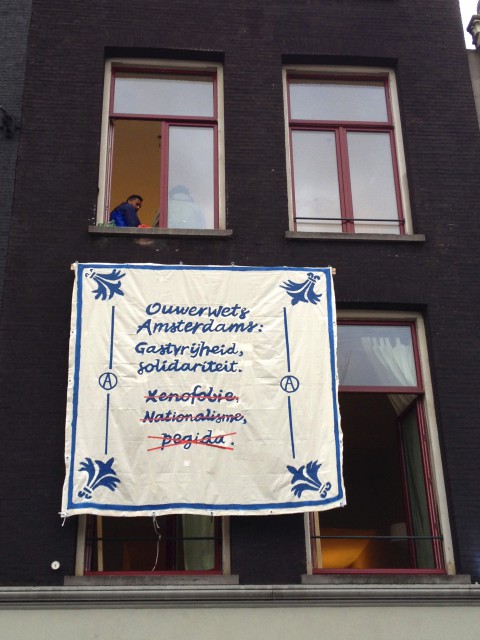 Ouwerwets
Amsterdams:
Gastvrijheid,
solidariteit.
Ⓐ Ⓐ
Xenofobie,
Nationalisme,
pegida.